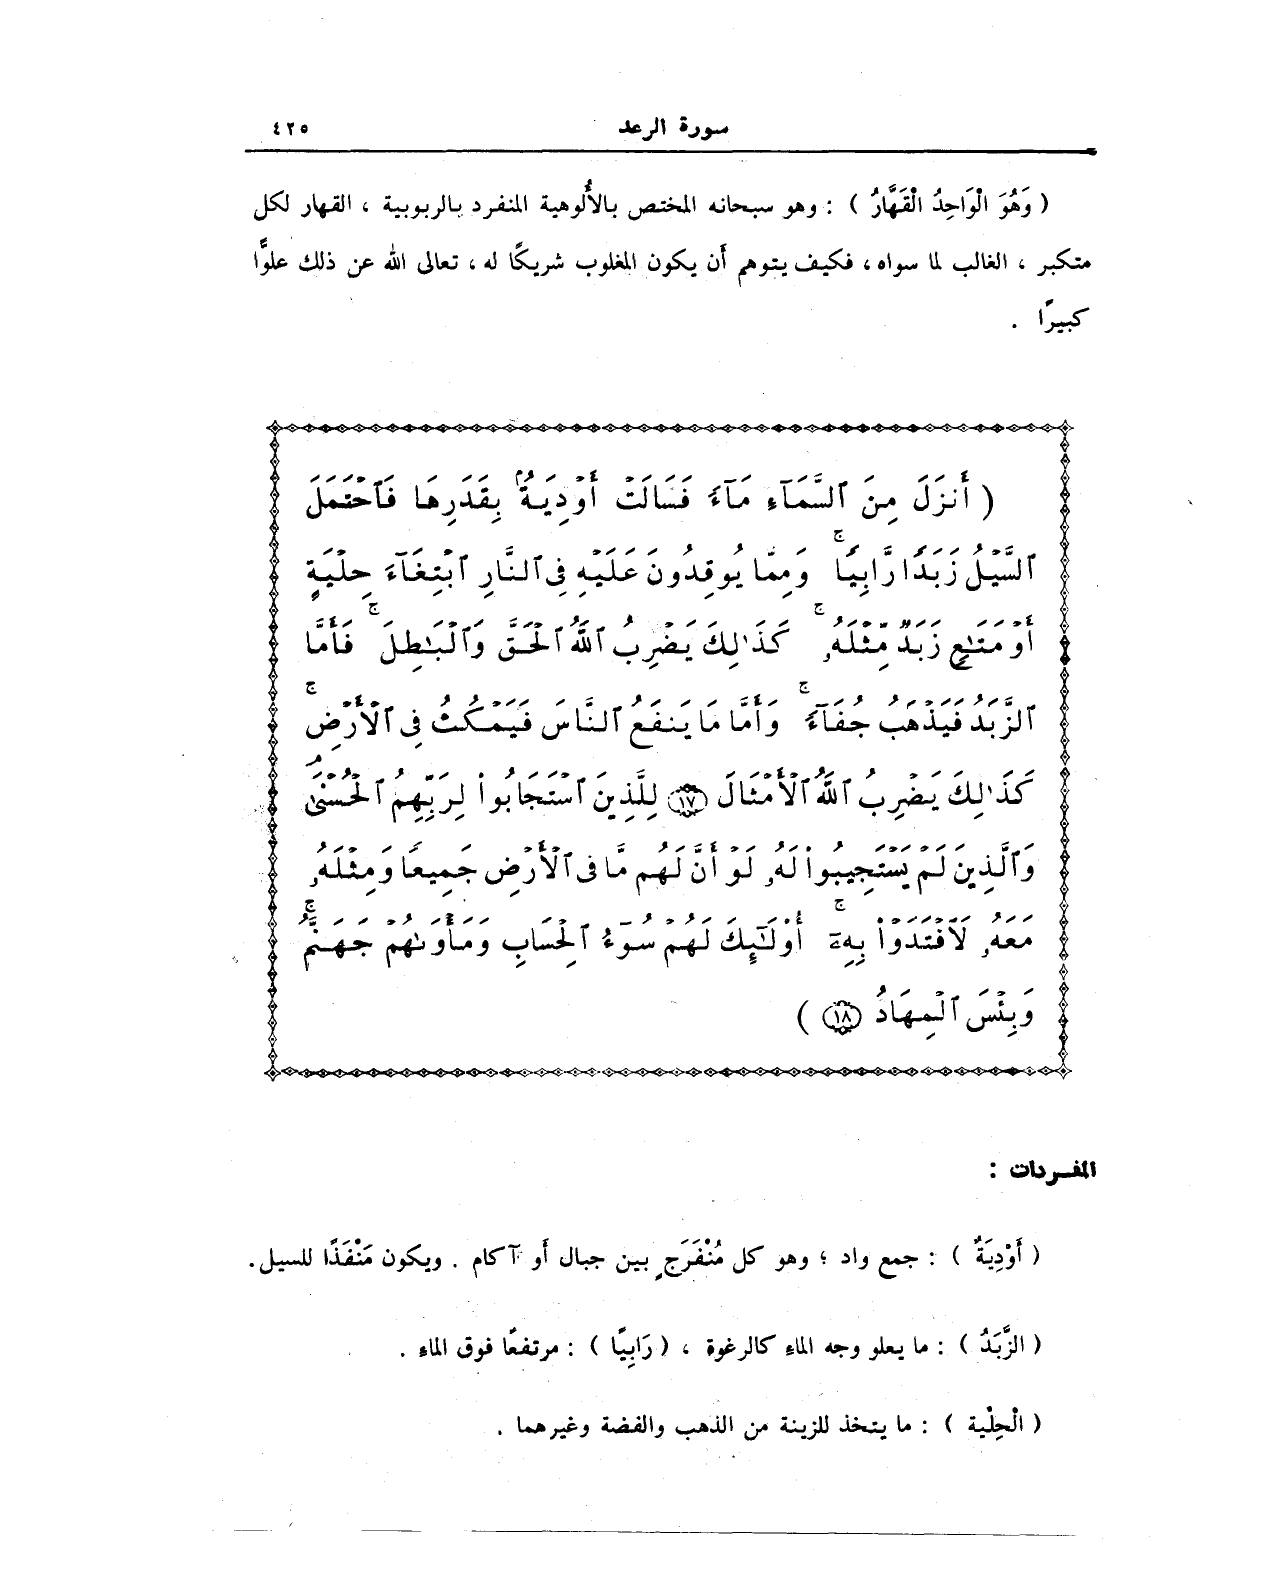 سورة الرعد ٤٢٥
( وَهُوَ الْوَاحِدُ الْقَهَّارُ ) : وهو سبحانه المختص بالأُلوهية المنفرد بالربوبية ، القهار لكل
متكبر ، الغالب لما سواه ، فكيف يتوهم أن يكون المغلوب شريكًا له ، تعالى الله عن ذلك علوًّا
كبيرًا .
( أَنزَلَ مِنَ ٱلسَّمَآءِ مَآءً فَسَالَتْ أَوْدِيَةٌۢ بِقَدَرِهَا فَٱحْتَمَلَ
ٱلسَّيْلُ زَبَدًا رَّابِيًاۚ وَمِمَّا يُوقِدُونَ عَلَيْهِ فِى ٱلنَّارِ ٱبْتِغَآءَ حِلْيَةٍ
أَوْ مَتَٰعٍ زَبَدٌ مِّثْلُهُۥۚ كَذَٰلِكَ يَضْرِبُ ٱللَّهُ ٱلْحَقَّ وَٱلْبَٰطِلَۚ فَأَمَّا
ٱلزَّبَدُ فَيَذْهَبُ جُفَآءًۚ وَأَمَّا مَا يَنفَعُ ٱلنَّاسَ فَيَمْكُثُ فِى ٱلْأَرْضِۚ
كَذَٰلِكَ يَضْرِبُ ٱللَّهُ ٱلْأَمْثَالَ ١٧ لِلَّذِينَ ٱسْتَجَابُوا۟ لِرَبِّهِمُ ٱلْحُسْنَىٰ
وَٱلَّذِينَ لَمْ يَسْتَجِيبُوا۟ لَهُۥ لَوْ أَنَّ لَهُم مَّا فِى ٱلْأَرْضِ جَمِيعًا وَمِثْلَهُۥ
مَعَهُۥ لَٱفْتَدَوْا۟ بِهِۦٓۚ أُو۟لَٰٓئِكَ لَهُمْ سُوٓءُ ٱلْحِسَابِ وَمَأْوَىٰهُمْ جَهَنَّمُۚ
وَبِئْسَ ٱلْمِهَادُ ١٨ )
المفردات :
( أَوْدِيَةٌ ) : جمع واد ؛ وهو كل مُنْفَرَجٍ بين جبال أو آكام . ويكون مَنْفَذًا للسيل .
( الزَّبَدُ ) : ما يعلو وجه الماء كالرغوة ، ( رَابِيًا ) : مرتفعًا فوق الماء .
( الْحِلْية ) : ما يتخذ للزينة من الذهب والفضة وغيرهما .